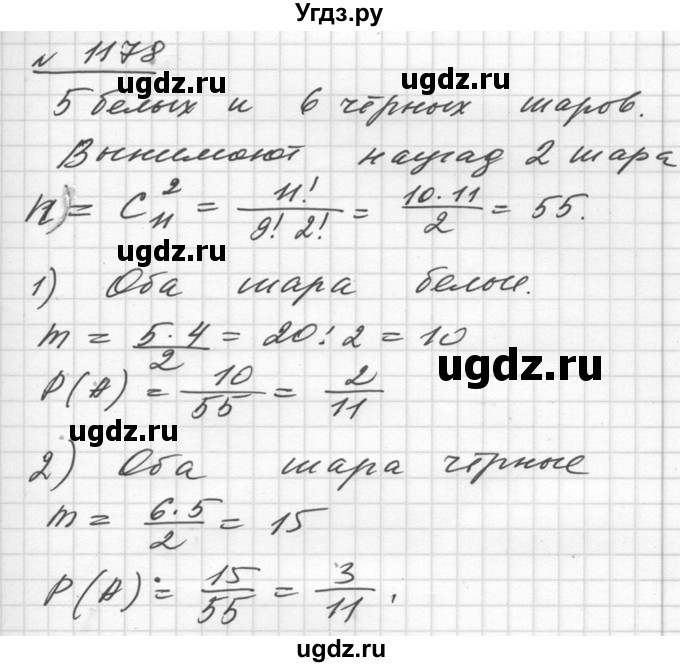 Угдз.ру
№ 1178
ugdz.ru
ugdz.ru
5 белых и 6 чёрных шаров.
Вынимают наугад 2 шара
n = C²₁₁ = 11!/9! 2! = 10·11/2 = 55.
ugdz.ru
ugdz.ru
1) Оба шара белые.
m = 5·4/2 = 20:2 = 10
ugdz.ru
P(A) = 10/55 = 2/11
ugdz.ru
2) Оба шара чёрные
m = 6·5/2 = 15
ugdz.ru
ugdz.ru
P(A) = 15/55 = 3/11.
ugdz.ru